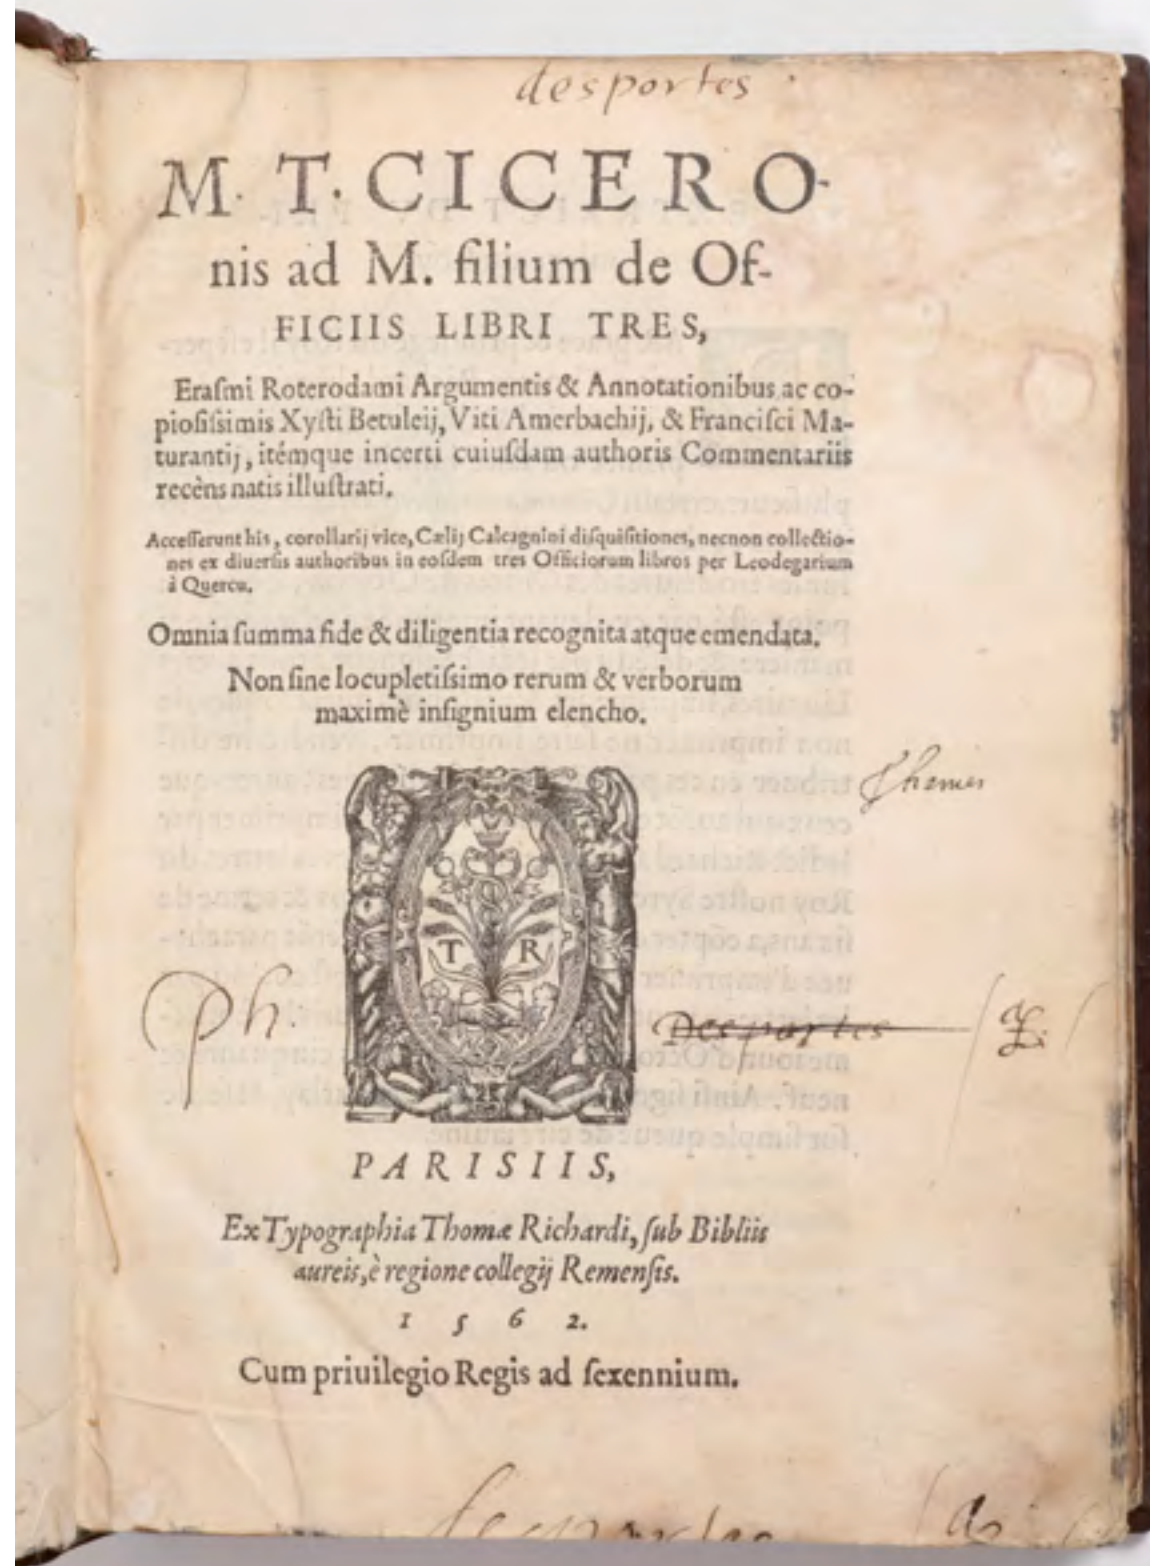 desportes
M. T. CICERO-
nis ad M. filium de Of-
FICIIS LIBRI TRES,
Eraſmi Roterodami Argumentis & Annotationibus ac co-
pioſiſsimis Xyſti Betuleij, Viti Amerbachij, & Franciſci Ma-
turantij, itémque incerti cuiuſdam authoris Commentariis
recèns natis illuſtrati.
Acceſſerunt his, corollarij vice, Cælij Calcagnini diſquiſitiones, necnon collectio-
nes ex diuerſis authoribus in eoſdem tres Officiorum libros per Leodegarium
à Quercu.
Omnia ſumma fide & diligentia recognita atque emendata.
Non ſine locupletiſsimo rerum & verborum
maximè inſignium elencho.
T R
Ph. Desportes
PARISIIS,
Ex Typographia Thomæ Richardi, ſub Bibliis
aureis, è regione collegij Remenſis.
1562.
Cum priuilegio Regis ad ſexennium.
desportes